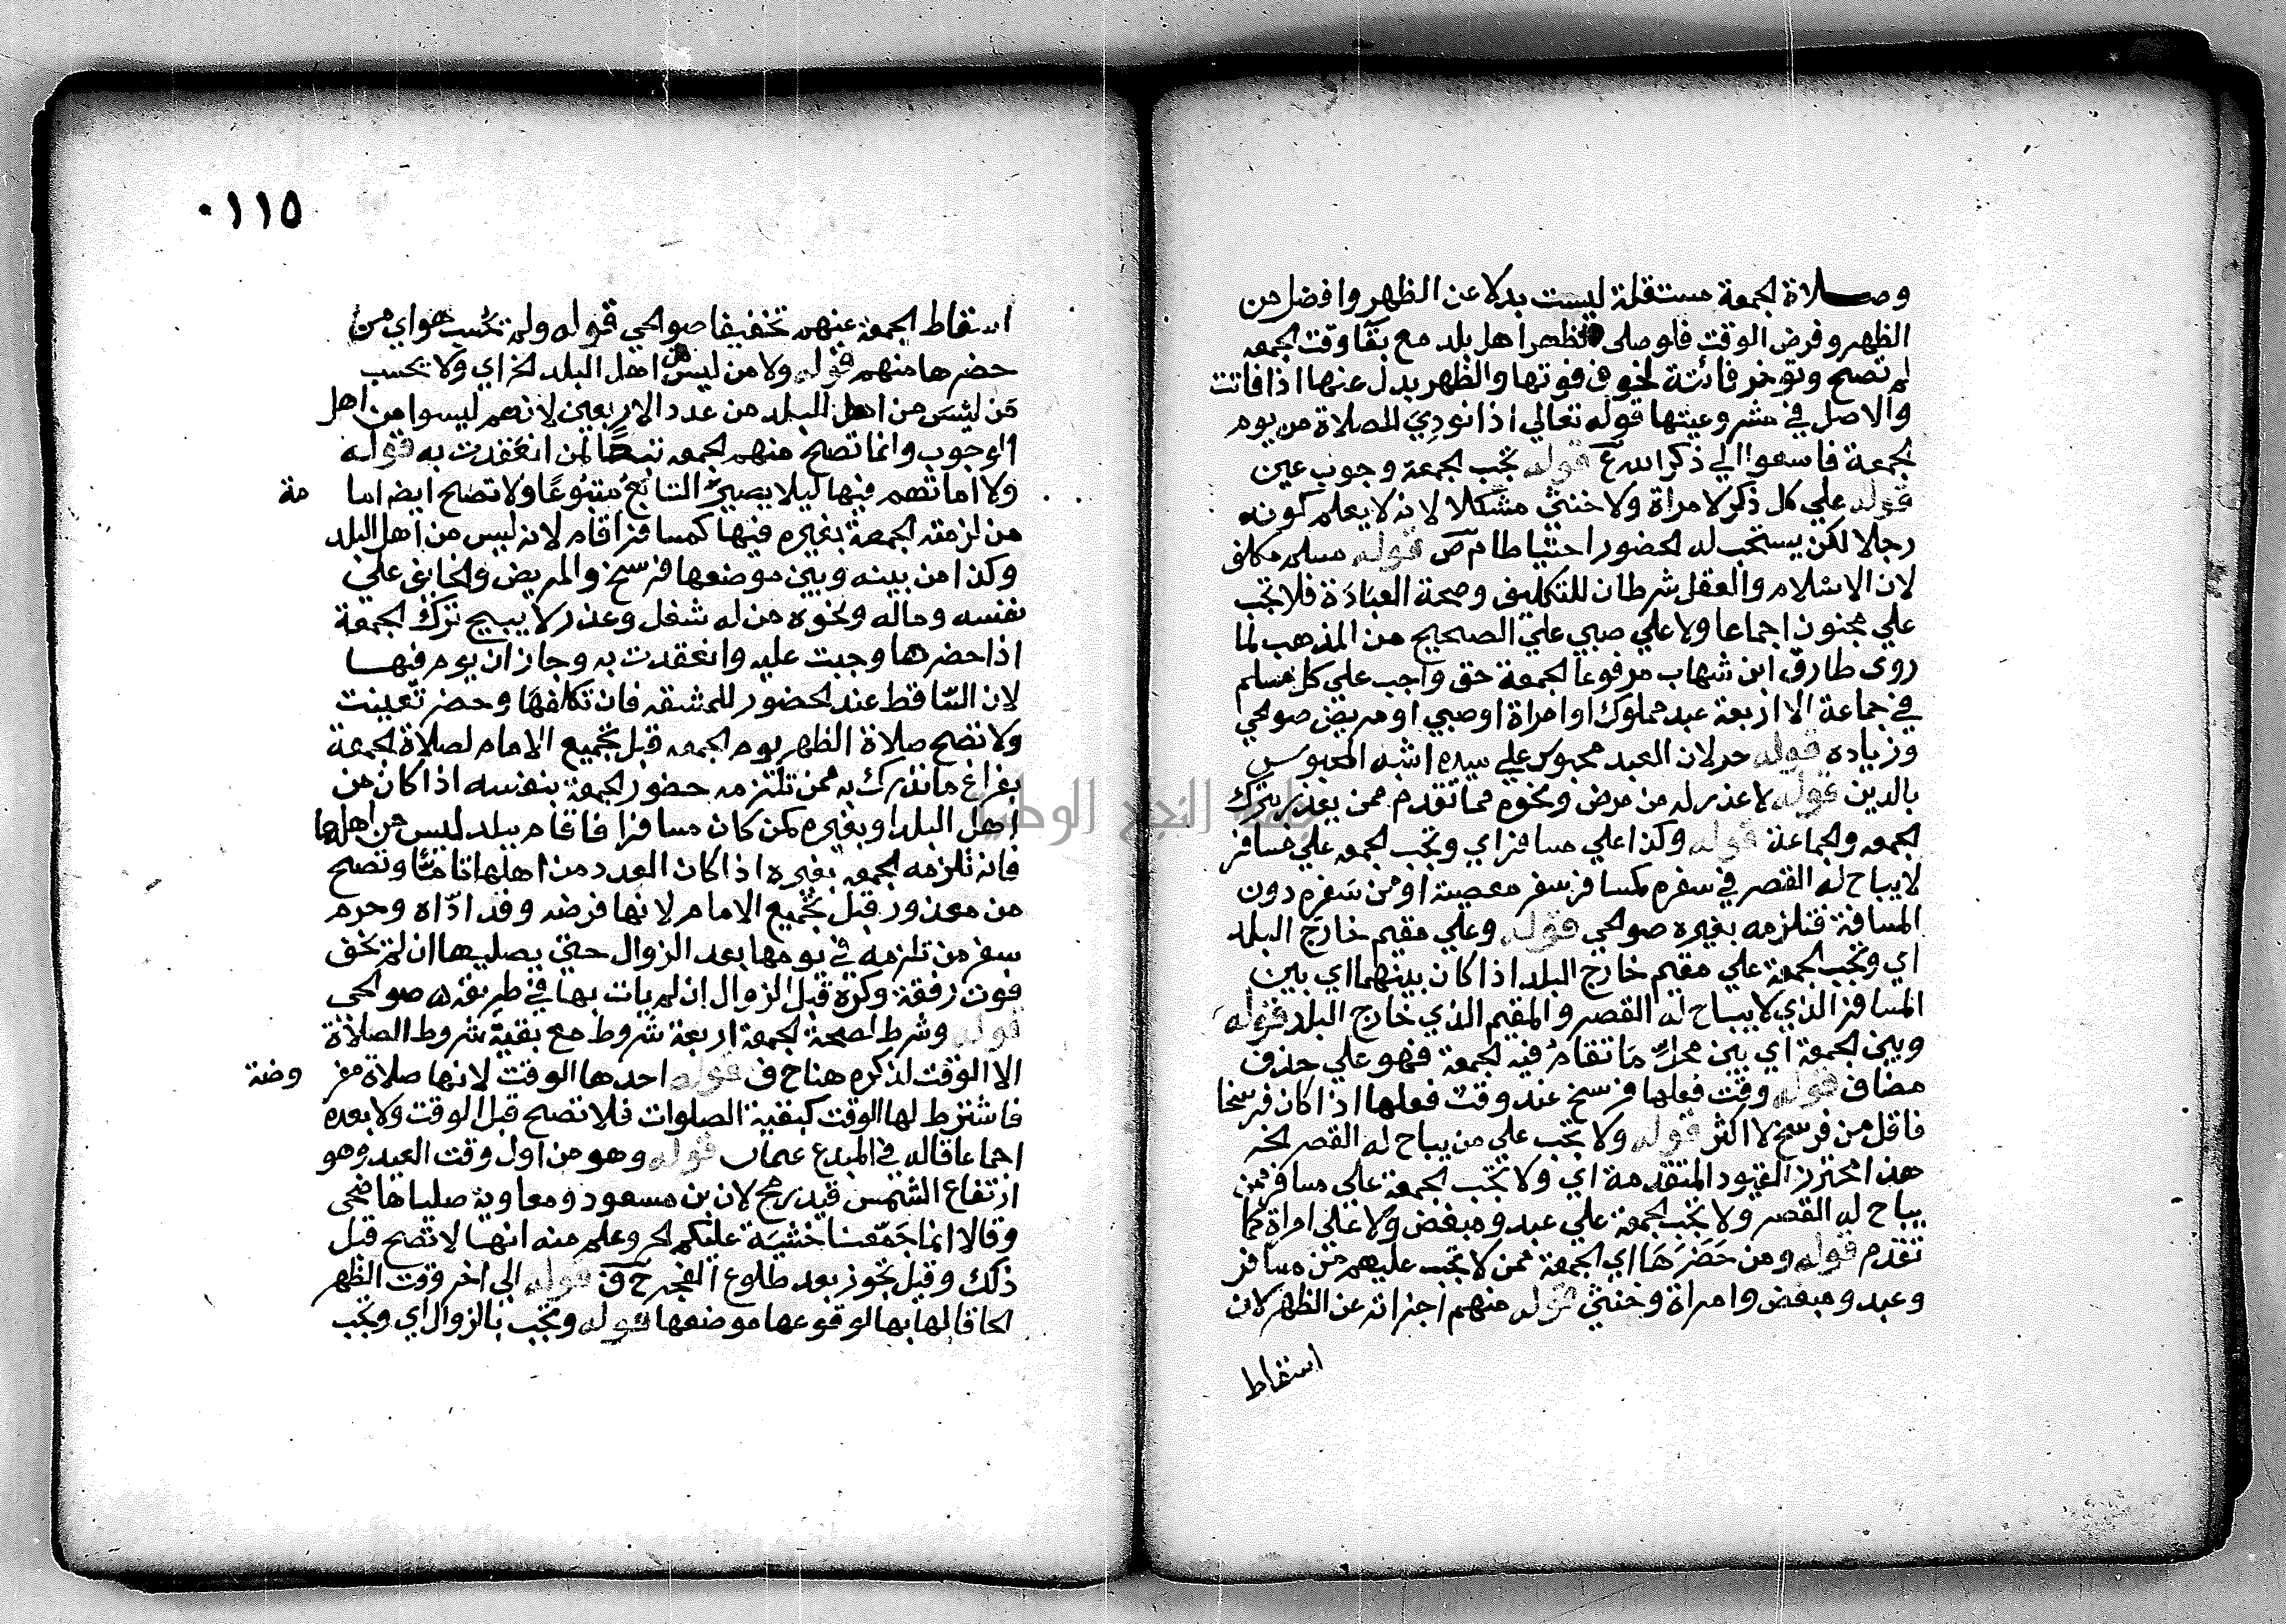 وصلاة الجمعة مستقلة ليست بدلا عن الظهر وافضل من
الظهر وفرض الوقت فلو صلى الظهر اهل بلد مع بقا وقت الجمعه
لم تصح وتوخر فائتة لخوف فوتها والظهر بدل عنها اذا فاتت
والاصل في مشروعيتها قوله تعالي اذا نودي للصلاة من يوم
الجمعة فاسعوا الي ذكر الله ع قوله تجب الجمعة وجوب عين
قوله علي كل ذكر لا مراة ولا خنثي مشكلا لانه لا يعلم كونه
رجلا لكن يستحب له الحضور احتياطا م ص قوله مسلم مكلف
لان الاسلام والعقل شرطان للتكليف وصحة العبادة فلا تجب
علي مجنون اجماعا ولا علي صبي علي الصحيح من المذهب لما
روى طارق ابن شهاب مرفوعا الجمعة حق واجب علي كل مسلم
في جماعة الا اربعة عبد مملوك او امراة او صبي او مريض صوالحي
وزياده قوله حر لان العبد محبوس علي سيده اشبه المحبوس
بالدين قوله لا عذر له من مرض ونحوه مما تقدم ممن يعذر بترك
الجمعه والجماعة قوله وكذا علي مسافر اي وتجب الجمعه علي مسافر
لا يباح له القصر في سفره كمسافر سفر معصية او من سفره دون
المسافة فتلزمه بغيره صوالحي قوله وعلي مقيم خارج البلد
اي وتجب الجمعة علي مقيم خارج البلد اذا كان بينهما اي بين
المسافر الذي لا يباح له القصر والمقيم الذي خارج البلد قوله
وبين الجمعة اي بين محل ما تقام فيه الجمعة فهو علي حذف
مضاف قوله وقت فعلها فرسخ عند وقت فعلها اذا كان فرسخا
فاقل من فرسخ لا اكثر قوله ولا تجب علي من يباح له القصر الخ
هذا محترز القيود المتقدمة اي ولا تجب الجمعة علي مسافر ممن
يباح له القصر ولا تجب الجمعة علي عبد ومبعض ولا علي امراة كما
تقدم قوله ومن حضرها اي الجمعة ممن لا تجب عليهم من مسافر
وعبد ومبعض وامراة وخنثي قوله منهم اجزاته عن الظهر لان
اسقاط
٠١١٥
اسقاط الجمعة عنهم تخفيفا صوالحي قوله ولم تحسب هو اي من
حضرها منهم قوله ولا من ليس من اهل البلد الخ اي ولا يحسب
من ليس من اهل البلد من عدد الاربعين لانهم ليسوا من اهل
الوجوب وانما تصح منهم الجمعه تبعا لمن انعقدت به قوله
ولا امامتهم فيها ليلا يصير التابع متبوعا ولا تصح ايضا اما مة
من لزمته الجمعة بغيره فيها كمسافر اقام لانه ليس من اهل البلد
وكذا من بينه وبين موضعها فرسخ والمريض والخايف علي
نفسه وماله ونحوه من له شغل وعذر لا يبيح ترك الجمعة
اذا حضرها وجبت عليه وانعقدت به وجاز ان يوم فيها
لان الساقط عند الحضور للمشقه فان تكلفها وحضر تعينت
ولا تصح صلاة الظهر يوم الجمعه قبل تجميع الامام لصلاة الجمعة
بفراغ ما تدرك به ممن تلتزمه حضور الجمعة بنفسه اذا كان من
اهل البلد او بغيره كمن كان مسافرا فاقام ببلد ليس من اهلها
فانه تلزمه الجمعه بغيره اذا كان العدد من اهلها تاما وتصح
من معذور قبل تجميع الامام لانها فرضه وقد اداه وحرم
سفر من تلزمه في يومها بعد الزوال حتي يصليها ان لم يخف
فوت رفقة وكره قبل الزوال ان لم يات بها في طريقه صوالحي
قوله وشرط لصحة الجمعة اربعة شروط مع بقية شروط الصلاة
الا الوقت لذكره هنا ح ف قوله احدها الوقت لانها صلاة مفر وضة
فاشترط لها الوقت كبقية الصلوات فلا تصح قبل الوقت ولا بعده
اجماعا قاله في المبدع عثمان قوله وهو من اول وقت العيد وهو
ارتفاع الشمس قيد رمح لان بن مسعود ومعاوية صلياها ضحى
وقالا انما جمعنا خشية عليكم الحر وعلم منه انها لا تصح قبل
ذلك وقيل تجوز بعد طلوع الفجر ح ف قوله الي اخر وقت الظهر
الحاقا لها بها لوقوعها موضعها قوله وتجب بالزوال اي وتجب